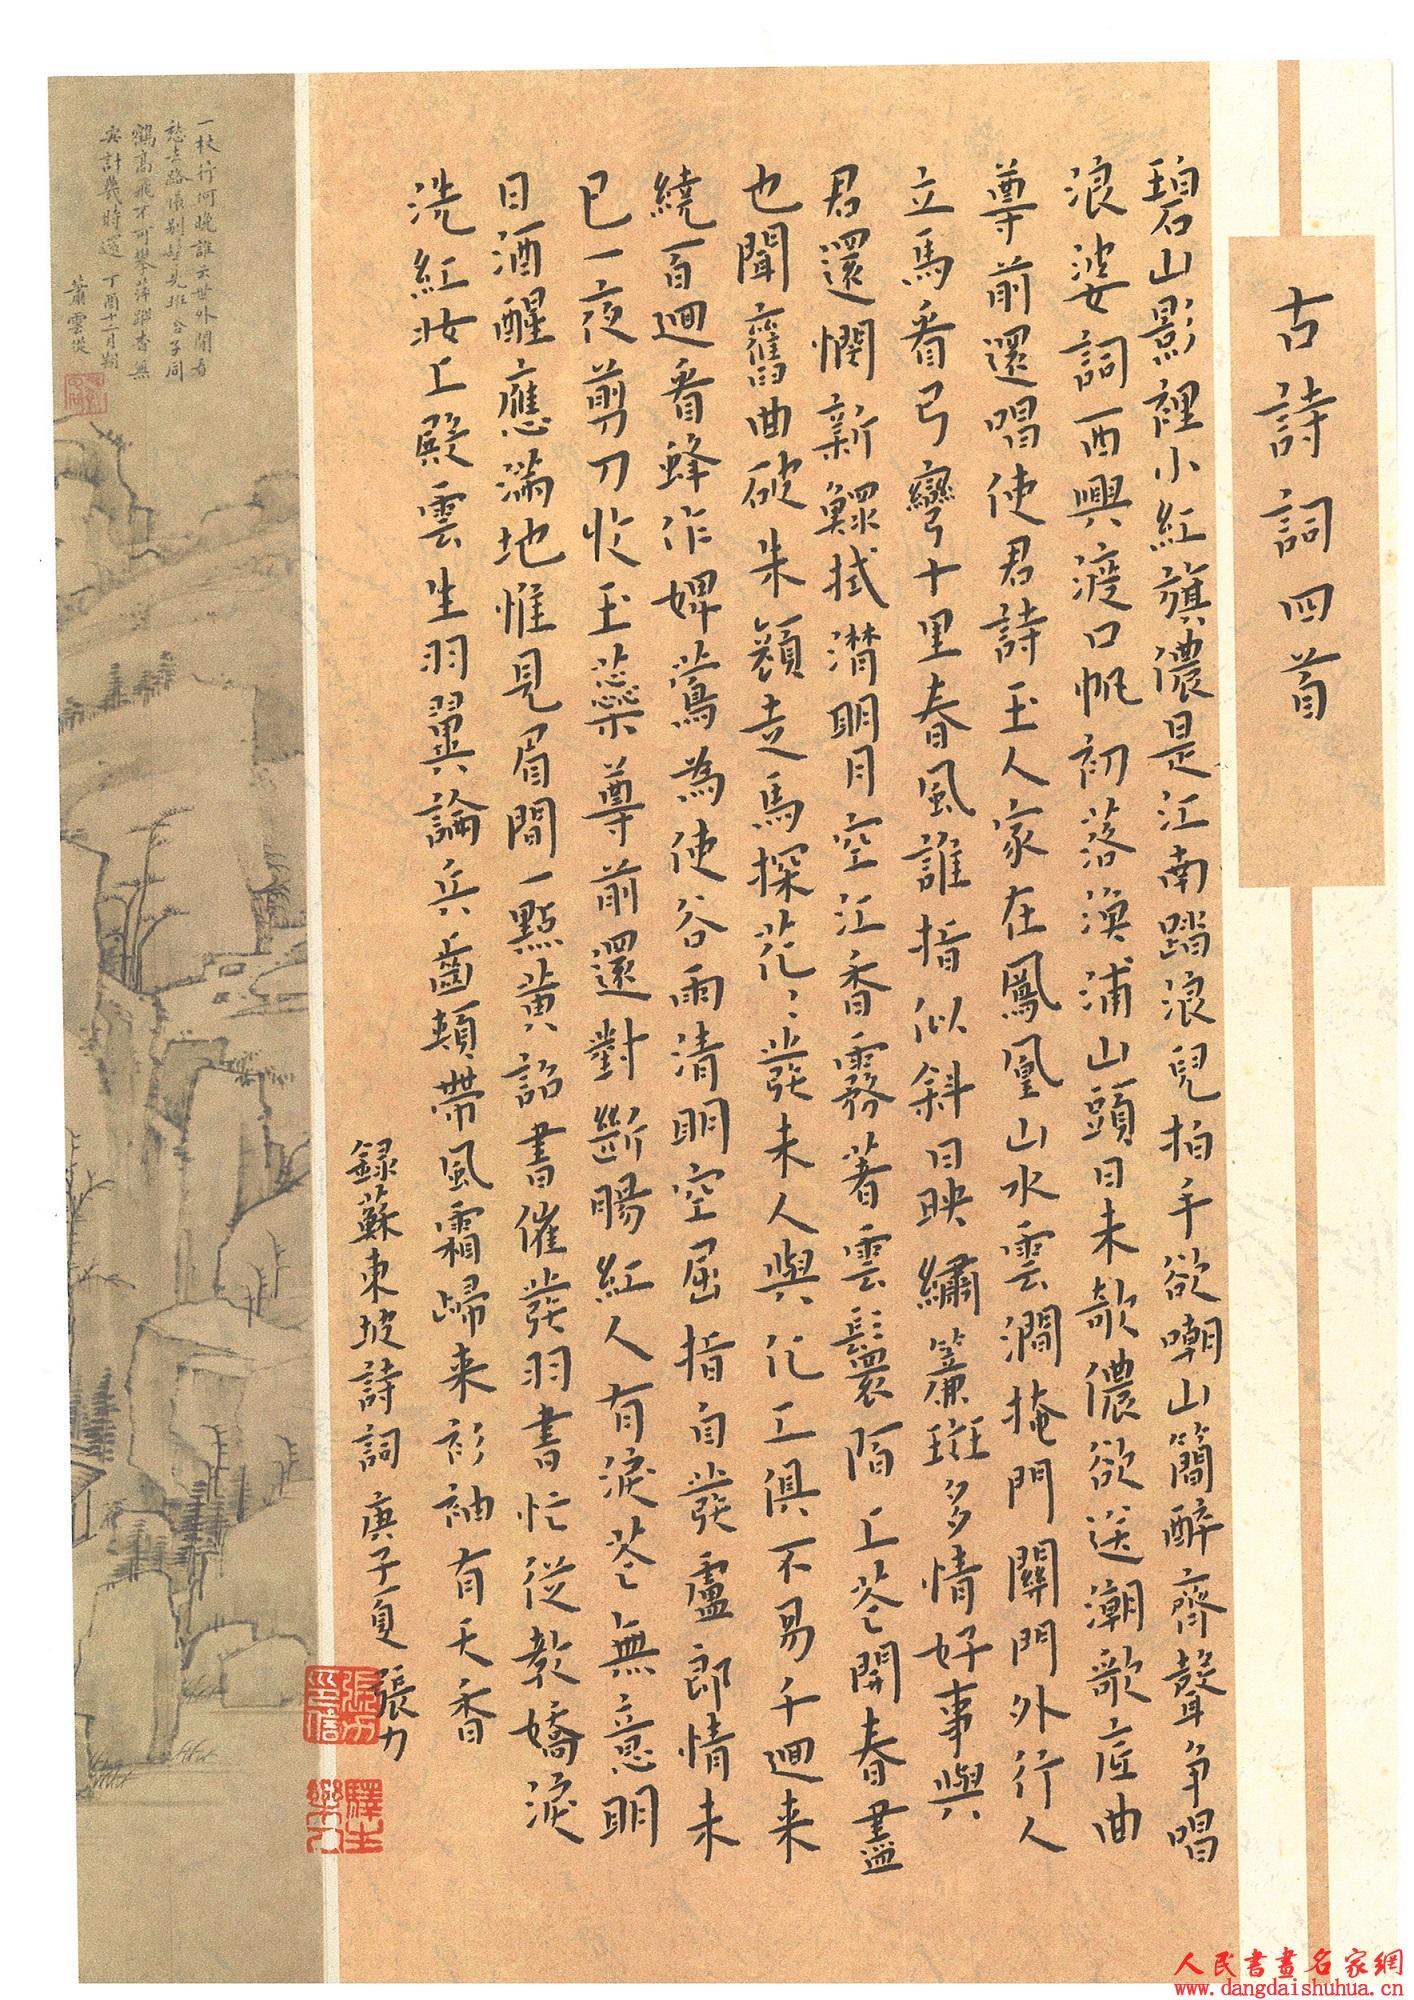 古詩詞四首
碧山影裡小紅旗儂是江南踏浪兒拍手欲嘲山簡醉齊聲爭唱
浪婆詞西興渡口帆初落漁浦山頭日未欹儂欲送潮歌底曲
尊前還唱使君詩玉人家在鳳凰山水雲澗掩門關門外行人
立馬看弓彎十里春風誰指似斜日映繡簾斑多情好事與
君還憫新鰥拭潸明月空江香霧著雲鬟陌上花開春盡
也聞舊曲破朱顏走馬探花花發未人與化工俱不易千迴来
繞百迴看蜂作婢鶯為使谷雨清明空屈指白發盧郎情未
已一夜剪刀收玉蕊尊前還對斷腸紅人有淚花無意明
日酒醒應滿地惟見眉間一點黃詔書催發羽書忙從教嬌淚
洗紅妝上殿雲生羽翼論兵齒頰帶風霜歸来衫袖有天香
錄蘇東坡詩詞 庚子夏 張力
張力
璽信
一杖行何晚誰云世外閒看
愁去路恨別
鶴高飛不可攀萍蹤杳無
定計幾時還 丁酉十二月朔
蕭雲從
人民書畫名家網
www.dangdaishuhua.cn